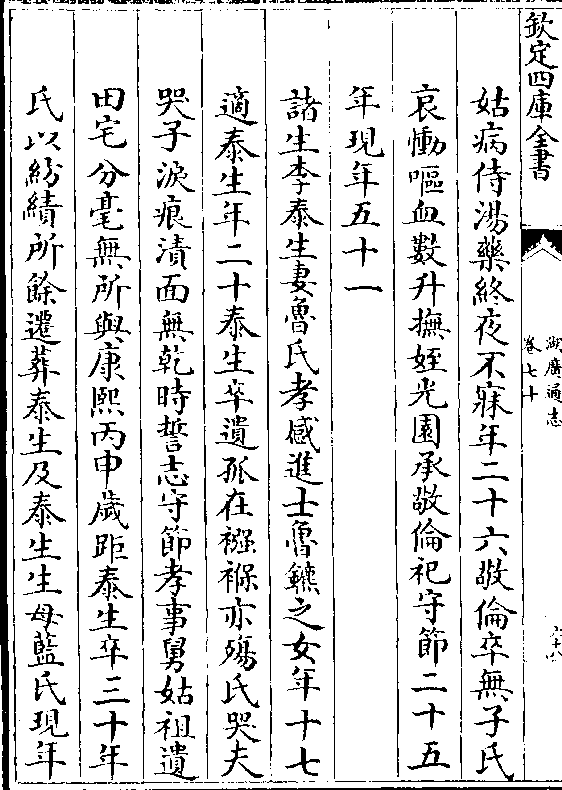 欽定四庫全書
湖廣通志
卷七十
六十八
姑病侍湯藥終夜不寐年二十六敬倫卒無子氏
哀慟嘔血數升撫姪光園承敬倫祀守節二十五
年現年五十一
諸生李泰生妻魯氏孝感進士魯鱮之女年十七
適泰生年二十泰生卒遺孤在襁褓亦殤氏哭夫
哭子淚痕漬面無乾時誓志守節孝事舅姑祖遺
田宅分毫無所與康熙丙申歲距泰生卒三十年
氏以紡績所餘遷葬泰生及泰生生母藍氏現年